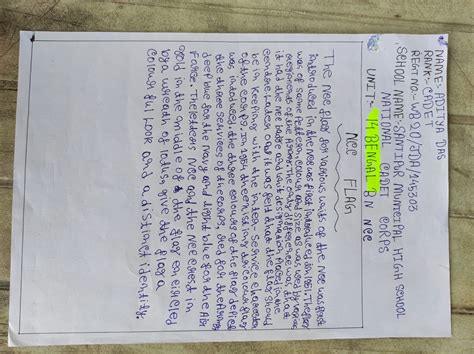 NAME:- ADITYA DAS
RANK:- CADET
REGT NO:- WB20/JDA/145303
SCHOOL NAME:- SANTIPUR MUNICIPAL HIGH SCHOOL
NATIONAL CADET CORPS
UNIT:- 14 BENGAL BN NCC
NCC FLAG
The NCC flag for various units of the NCC was first
introduced in the NCC was first introduced in 1951. The flag
was of same pattern, colour and size as was used by various
regiments of the Army. The only difference was that
it had the NCC badge and unit designation placed in the
centre. Later on it was felt that the flag should
be in keeping with the inter-service character
of the corps. In 1954 the existing tricolour flag
was introduced. The three colours of the flag depict
the three services of the corps, red for the Army,
deep blue for the navy and light blue for the Air
Force. The letters NCC and the NCC crest in
gold in the middle of the flag encircled
by a wreath of lotus, give the flag a
colourful look and a distinct identity.